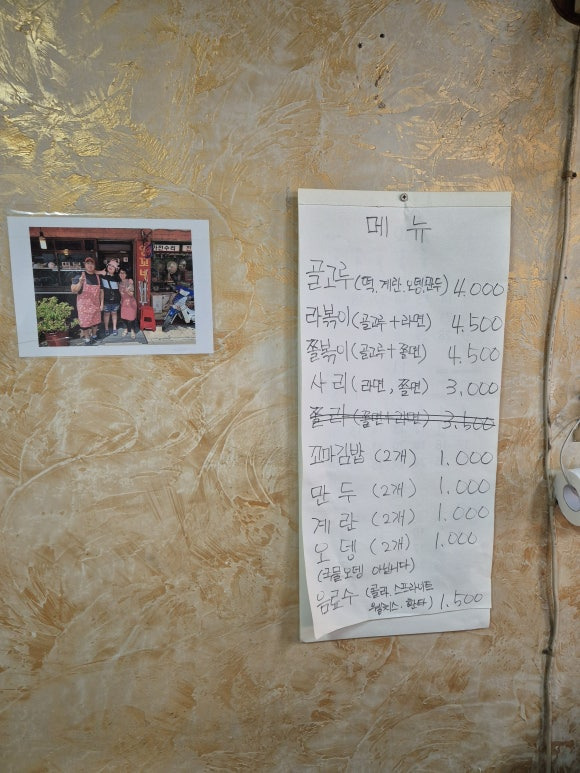 메뉴
골고루 (떡, 계란, 오뎅, 만두) 4,000
라볶이 (골고루 + 라면) 4,500
쫄볶이 (골고루 + 쫄면) 4,500
사리 (라면, 쫄면) 3,000
쫄라 (쫄면 + 라면) 3,500
꼬마김밥 (2개) 1,000
만두 (2개) 1,000
계란 (2개) 1,000
오뎅 (2개) 1,000
(국물오뎅 아닙니다)
음료수 (콜라, 스프라이트
웰치스, 환타) 1,500